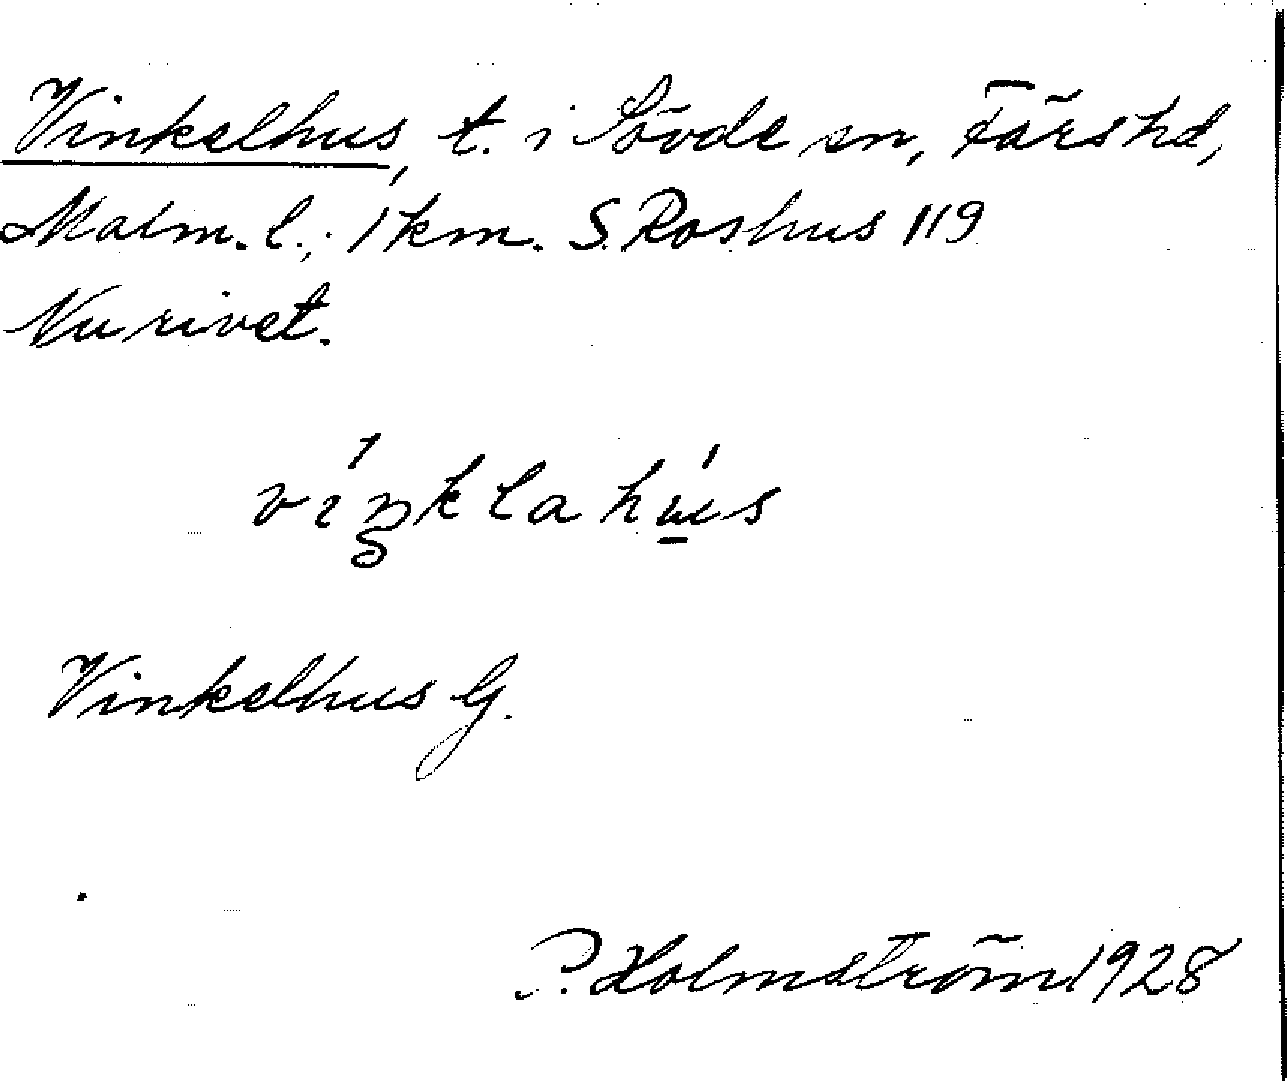 Vinkelhus, t. i Sövde sn, Färs hd,
Malm. l.; 1 km. S. Roshus 119
Nu rivet.
víŋklahú̱s
Vinkelhus G.
P. Holmström 1928